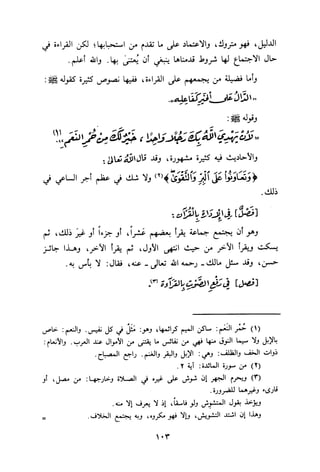 الدليل، فهو متروك، والاعتماد على ما تقدم من استحبابها؛ لكن القراءة في
حال الاجتماع لها شروط قدمناها ينبغي أن يُعتنى بها. والله أعلم.
وأما فضيلة من يجمعهم على القراءة، ففيها نصوص كثيرة كقوله ﷺ:
«الدَّالُّ عَلَى الْخَيْرِ كَفَاعِلِهِ»
وقوله ﷺ:
«لَأَنْ يَهْدِيَ اللَّهُ بِكَ رَجُلًا وَاحِدًا، خَيْرٌ لَكَ مِنْ حُمْرِ النَّعَمِ»(١)
والأحاديث فيه كثيرة مشهورة، وقد قال اللَّهُ تعالى:
﴿وَتَعَاوَنُوا عَلَى الْبِرِّ وَالتَّقْوَىٰ﴾(٢) ولا شك في عظم أجر الساعي في
ذلك.
[فصل] في الإدارة بالقرآن:
وهو أن يجتمع جماعة يقرأ بعضهم عُشراً، أو جزءاً أو غيرَ ذلك، ثم
يسكت ويقرأ الآخر من حيث انتهى الأول، ثم يقرأ الآخر، وهذا جائز
حسن، وقد سئل مالك ـ رحمه الله تعالى ـ عنه، فقال: لا بأس به.
[فصل] في رفع الصوت بالقراءة(٣)
(١) حُمْر النعَم: ساكن الميم كرائمها، وهو: مَثَلٌ في كل نفيس. والنعم: خاص
بالإبل ولا سيما النوق منها فهي من نفائس ما يقتنى من الأموال عند العرب. والأنعام:
ذوات الخف والظلف: وهي: الإبل والبقر والغنم. راجع المصباح.
(٢) من سورة المائدة: آية ٢.
(٣) ويحرم الجهر إن شوش على غيره في الصلاة وخارجها: من مصل، أو
قارىء وغيرهما للضرورة.
ويؤخذ بقول المتشوش ولو فاسقاً، إذ لا يعرف إلا منه.
وهذا إن اشتد التشويش، وإلا فهو مكروه، وبه يجتمع الخلاف. =
١٠٣